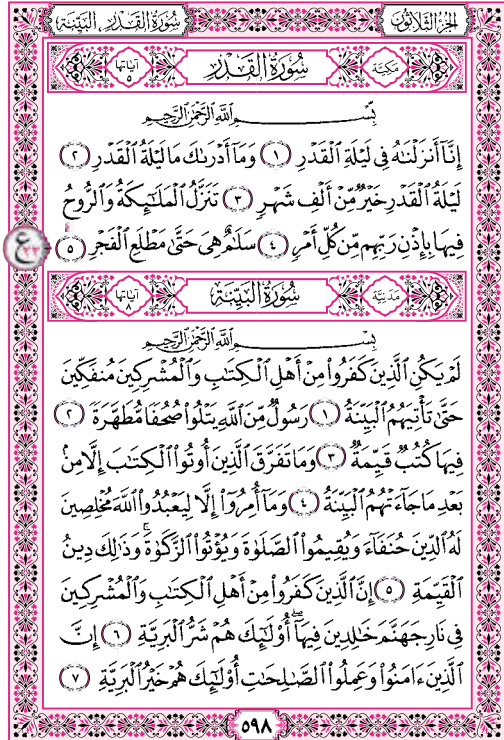 الجزء الثلاثون سورة القدر، البينة
مكية سُورَةُ القَدْرِ آياتها ٥
بِسْمِ اللَّهِ الرَّحْمَٰنِ الرَّحِيمِ
إِنَّآ أَنزَلْنَٰهُ فِي لَيْلَةِ ٱلْقَدْرِ ١ وَمَآ أَدْرَىٰكَ مَا لَيْلَةُ ٱلْقَدْرِ ٢
لَيْلَةُ ٱلْقَدْرِ خَيْرٌ مِّنْ أَلْفِ شَهْرٍ ٣ تَنَزَّلُ ٱلْمَلَٰٓئِكَةُ وَٱلرُّوحُ
فِيهَا بِإِذْنِ رَبِّهِم مِّن كُلِّ أَمْرٍ ٤ سَلَٰمٌ هِىَ حَتَّىٰ مَطْلَعِ ٱلْفَجْرِ ٥
مدنية سُورَةُ البَيِّنَةِ آياتها ٨
بِسْمِ اللَّهِ الرَّحْمَٰنِ الرَّحِيمِ
لَمْ يَكُنِ ٱلَّذِينَ كَفَرُوا۟ مِنْ أَهْلِ ٱلْكِتَٰبِ وَٱلْمُشْرِكِينَ مُنفَكِّينَ
حَتَّىٰ تَأْتِيَهُمُ ٱلْبَيِّنَةُ ١ رَسُولٌ مِّنَ ٱللَّهِ يَتْلُوا۟ صُحُفًا مُّطَهَّرَةً ٢
فِيهَا كُتُبٌ قَيِّمَةٌ ٣ وَمَا تَفَرَّقَ ٱلَّذِينَ أُوتُوا۟ ٱلْكِتَٰبَ إِلَّا مِنۢ
بَعْدِ مَا جَآءَتْهُمُ ٱلْبَيِّنَةُ ٤ وَمَآ أُمِرُوٓا۟ إِلَّا لِيَعْبُدُوا۟ ٱللَّهَ مُخْلِصِينَ
لَهُ ٱلدِّينَ حُنَفَآءَ وَيُقِيمُوا۟ ٱلصَّلَوٰةَ وَيُؤْتُوا۟ ٱلزَّكَوٰةَ ۚ وَذَٰلِكَ دِينُ
ٱلْقَيِّمَةِ ٥ إِنَّ ٱلَّذِينَ كَفَرُوا۟ مِنْ أَهْلِ ٱلْكِتَٰبِ وَٱلْمُشْرِكِينَ
فِى نَارِ جَهَنَّمَ خَٰلِدِينَ فِيهَآ ۚ أُو۟لَٰٓئِكَ هُمْ شَرُّ ٱلْبَرِيَّةِ ٦ إِنَّ
ٱلَّذِينَ ءَامَنُوا۟ وَعَمِلُوا۟ ٱلصَّٰلِحَٰتِ أُو۟لَٰٓئِكَ هُمْ خَيْرُ ٱلْبَرِيَّةِ ٧
٥٩٨